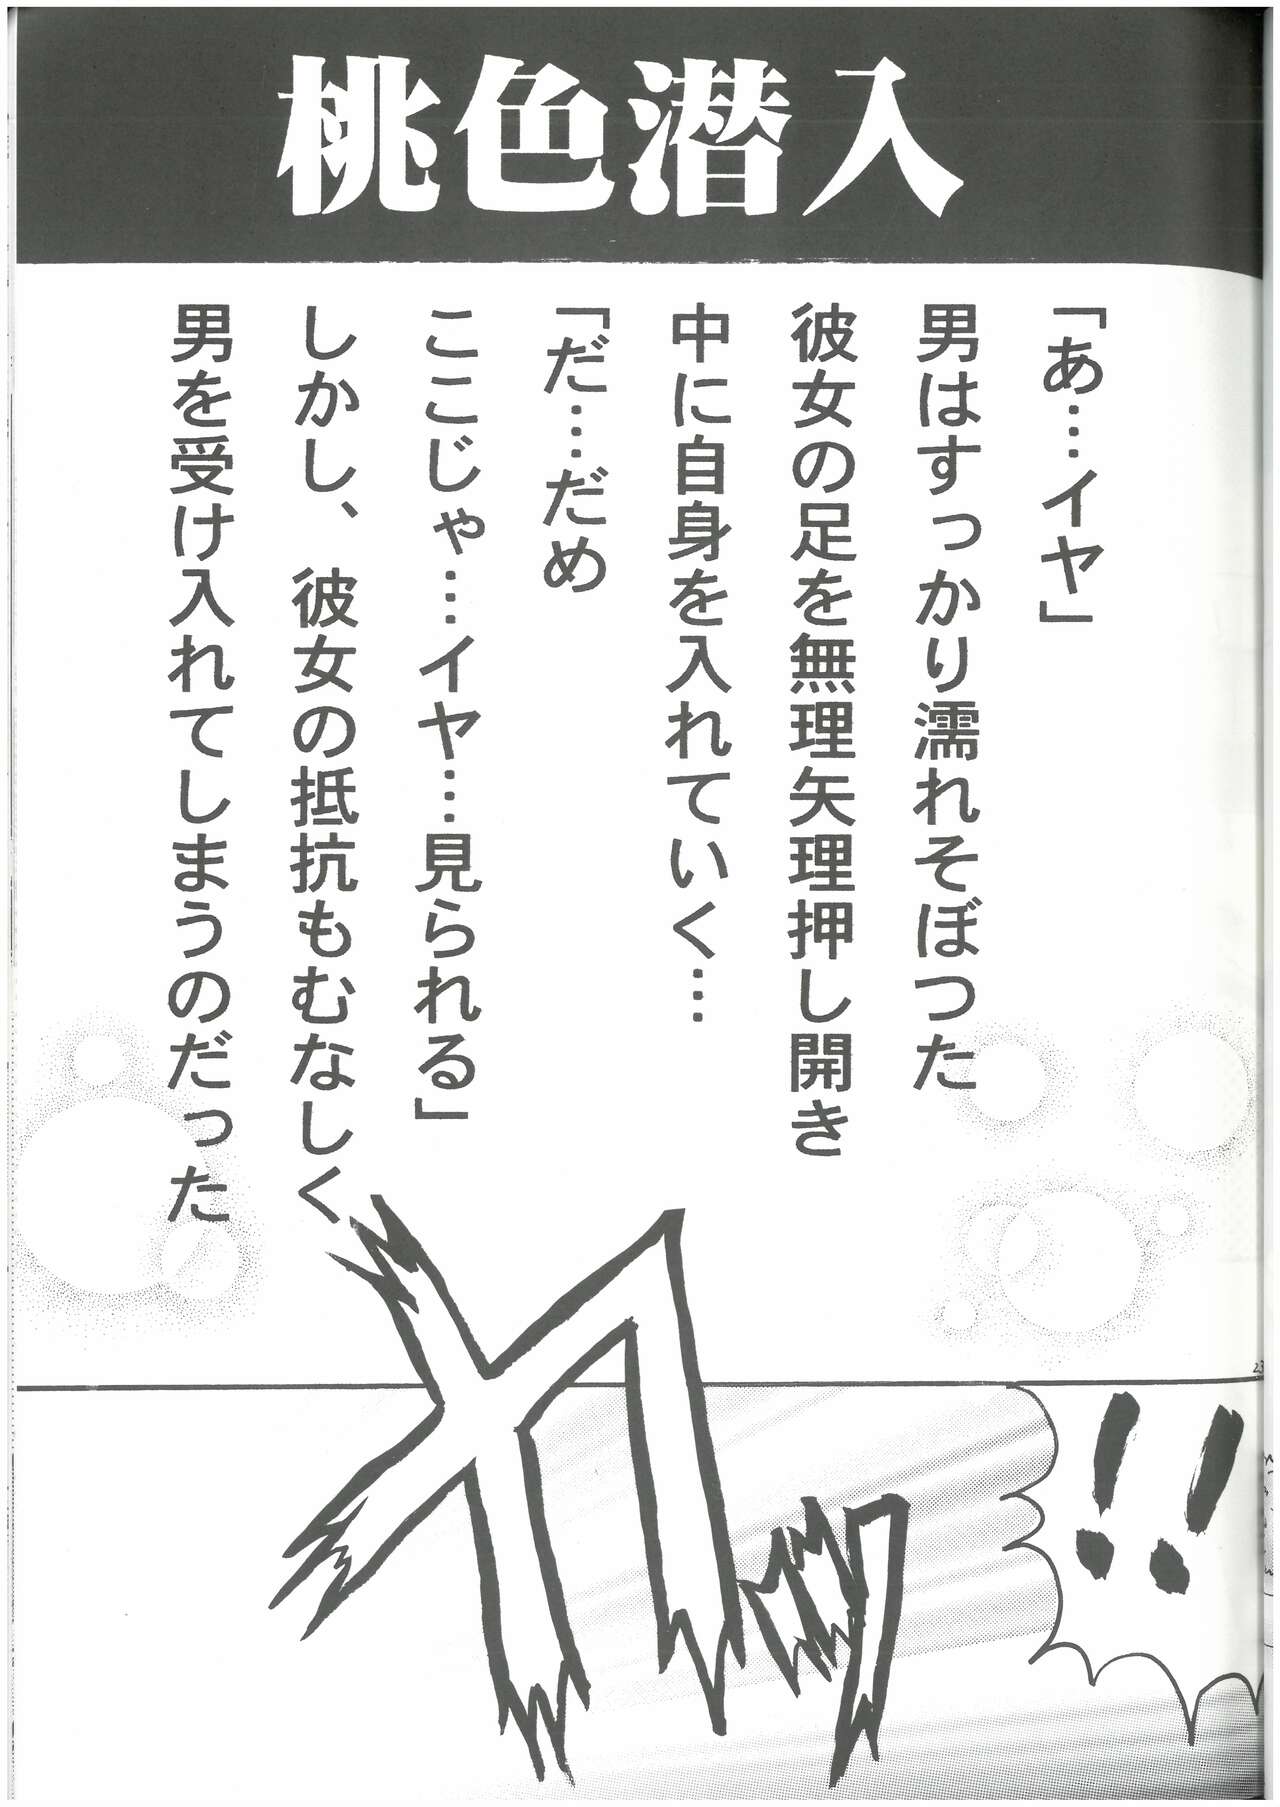 桃色潜入
「あ…イヤ」
男はすっかり濡れそぼつた
彼女の足を無理矢理押し開き
中に自身を入れていく…
「だ…だめ
ここじゃ…イヤ…見られる」
しかし、彼女の抵抗もむなしく
男を受け入れてしまうのだった
カッ
!!
23